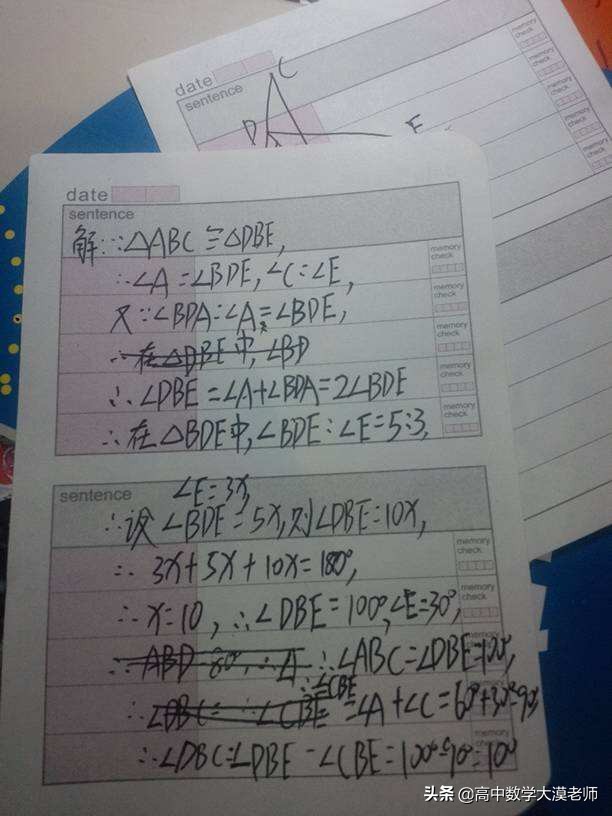 date
sentence
memory check
C
D
E
memory check
memory check
memory check
memory check
date
sentence
解:∵△ABC≌△DBE,
memory check
∴∠A=∠BDE,∠C=∠E,
memory check
又∵∠BDA=∠A=∠BDE,
memory check
∴在△DBE中,∠BD
memory check
∴∠DBE=∠A+∠BDA=2∠BDE
memory check
∴在△BDE中,∠BDE:∠E=5:3,
sentence
∠E=3x,
∴设∠BDE=5x,则∠DBE=10x,
memory check
∴3x+5x+10x=180°,
memory check
∴x=10,∴∠DBE=100°,∠E=30°,
∴ABD=80°,∴∠A ∴∠ABC=∠DBE=100°,
∴∠CBE
∴∠DBC= ∴∠CBE =∠A+∠C=60°+30°=90°
∴∠DBC=∠DBE-∠CBE=100°-90°=10°
头条 @高中数学大漠老师